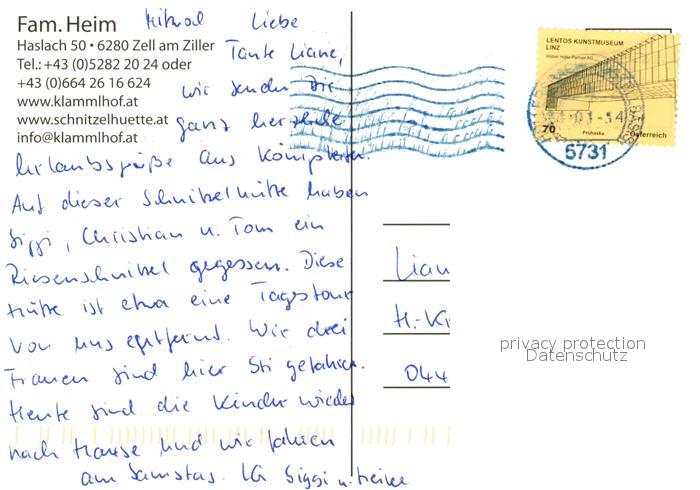 Fam. Heim
Haslach 50 • 6280 Zell am Ziller
Tel.: +43 (0)5282 20 24 oder
+43 (0)664 26 16 624
www.klammlhof.at
www.schnitzelhuette.at
info@klammlhof.at
Liebe
Tante Liane,
wir senden Dir
ganz herzliche
Urlaubsgrüße aus
Auf dieser Schnitzelhütte haben
Siggi, Christian u. Tom ein
Riesenschnitzel gegessen. Diese
Hütte ist etwa eine Tagestour
von uns entfernt. Wir drei
Frauen sind hier Ski gefahren.
Heute sind die Kinder wieder
nach Hause und wir fahren
am Samstag. LG Siggi u.
LENTOS KUNSTMUSEUM
LINZ
70
Prohaska
Österreich
5731
Lian
H.-Ki
044
privacy protection
Datenschutz